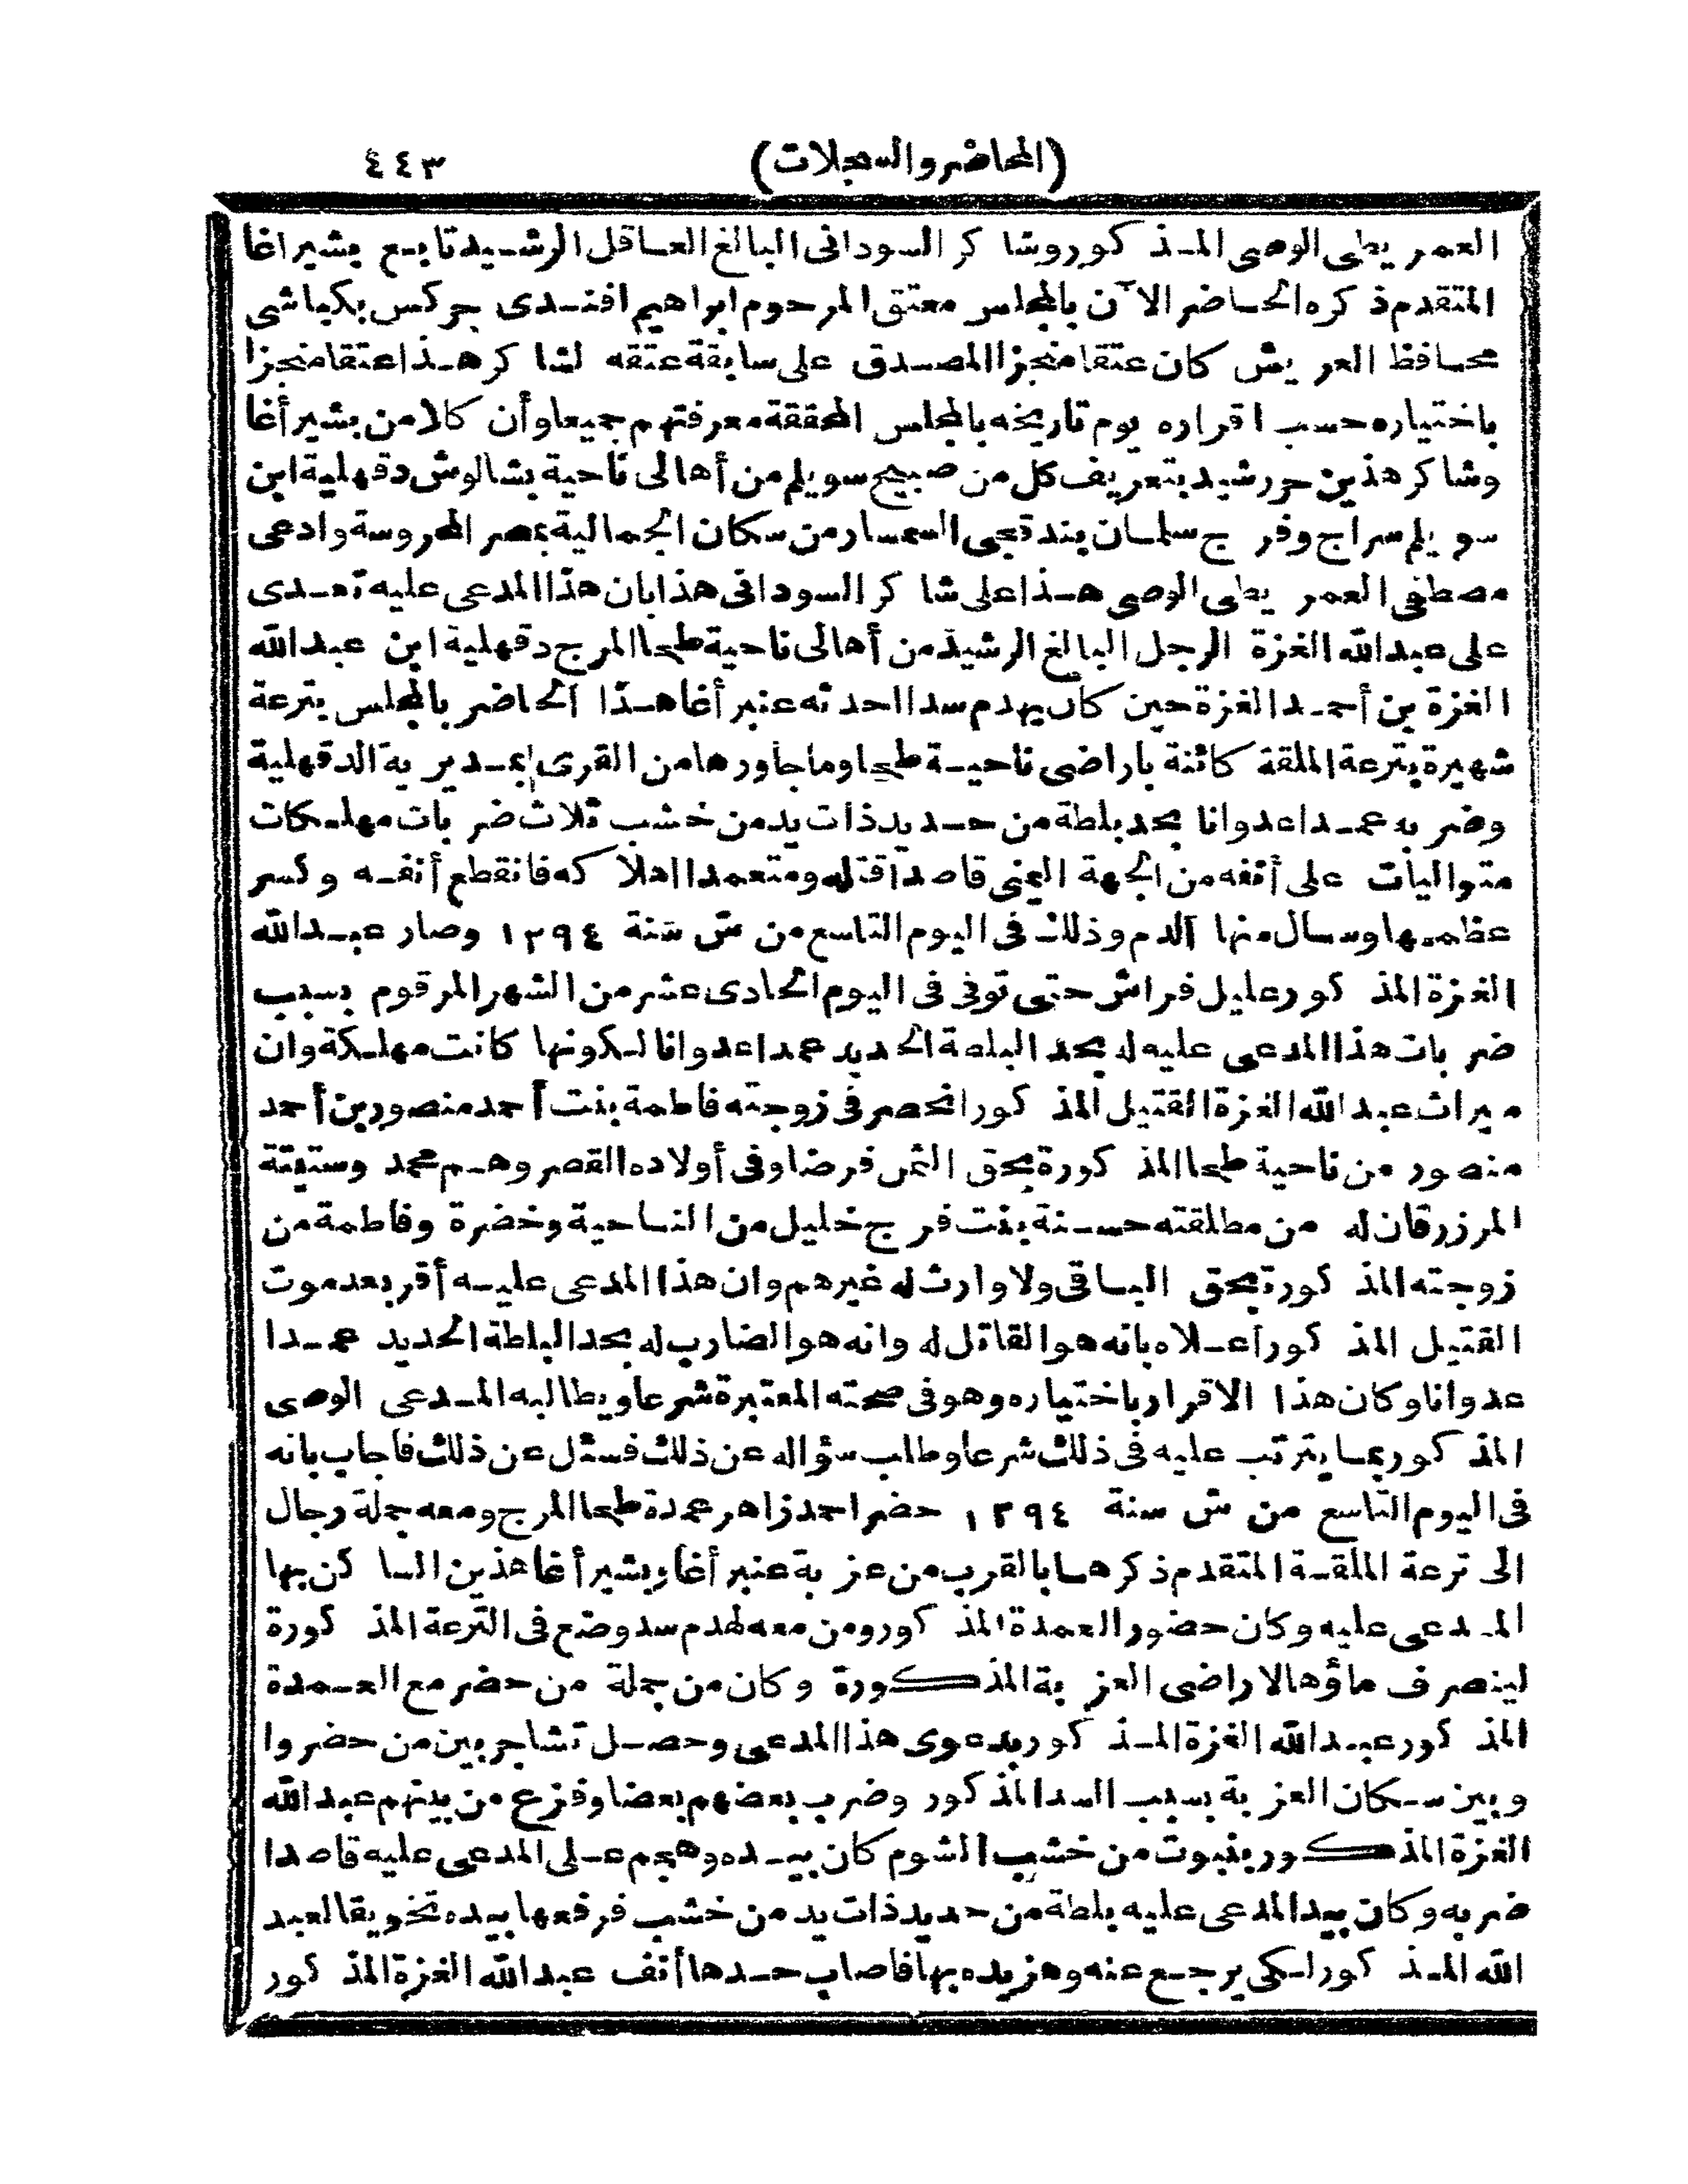 (المحاضر والسجلات) ٤٤٣
العمريطى الوصى المذكور وشاكر السودانى البالغ العاقل الرشيد تابع بشير اغا
المتقدم ذكره الحاضر الآن بالمجلس معتق المرحوم ابراهيم افندى جركس بكباشى
محافظ العريش كان عتقا منجزا المصدق على سابقة عتقه لشاكر هذا عتقا منجزا
باختياره حسب اقراره يوم تاريخه بالمجلس المحققة معرفتهم جميعا وأن كلا من بشير أغا
وشاكر هذين حر رشيد بتعريف كل من صبيح سويلم من أهالى ناحية بشالوش دقهلية ابن
سويلم سراج وفرج سلمان بندقجى السمسار من سكان الجمالية بمصر المحروسة وادعى
مصطفى العمريطى الوصى هذا على شاكر السودانى هذا بان هذا المدعى عليه تعدى
على عبد الله الغزة الرجل البالغ الرشيد من أهالى ناحية طحا المرج دقهلية ابن عبد الله
الغزة بن أحمد الغزة حين كان يهدم سدا احدثه عنبر أغا هذا الحاضر بالمجلس بترعة
شهيرة بترعة الملقة كائنة باراضى ناحية طحا وما جاورها من القرى بمديرية الدقهلية
وضربه عمدا عدوانا بحد بلطة من حديد ذات يد من خشب ثلاث ضربات مهلكات
متواليات على أنفه من الجهة اليمنى قاصدا قتله ومتعمدا اهلاكه فانقطع أنفه وكسر
عظمها وسال منها الدم وذلك فى اليوم التاسع من ش سنة ١٢٩٤ وصار عبد الله
الغزة المذكور عليل فراش حتى توفى فى اليوم الحادى عشر من الشهر المرقوم بسبب
ضربات هذا المدعى عليه له بحد البلطة الحديد عمدا عدوانا لكونها كانت مهلكة وان
ميراث عبد الله الغزة القتيل المذكور انحصر فى زوجته فاطمة بنت أحمد منصور بن أحمد
منصور من ناحية طحا المذكورة بحق الثمن فرضا وفى أولاده القصر وهم محمد وستيتة
المرزوقان له من مطلقته حسنة بنت فرج خليل من الناحية وخضرة وفاطمة من
زوجته المذكورة بحق الباقى ولا وارث له غيرهم وان هذا المدعى عليه أقر بعد موت
القتيل المذكور أعلاه بانه هو القاتل له وانه هو الضارب له بحد البلطة الحديد عمدا
عدوانا وكان هذا الاقرار باختياره وهو فى صحته المعتبرة شرعا ويطالبه المدعى الوصى
المذكور بما يترتب عليه فى ذلك شرعا وطلب سؤاله عن ذلك فسئل عن ذلك فاجاب بانه
فى اليوم التاسع من ش سنة ١٢٩٤ حضر احمد زاهر عمدة طحا المرج ومعه جملة رجال
الى ترعة الملقة المتقدم ذكرها بالقرب من عزبة عنبر أغا وبشير أغا هذين الساكن بها
المدعى عليه وكان حضور العمدة المذكور ومن معه لهدم سد وضع فى الترعة المذكورة
لينصرف ماؤها لاراضى العزبة المذكورة وكان من جملة من حضر مع العمدة
المذكور عبد الله الغزة المذكور بدعوى هذا المدعى وحصل تشاجر بين من حضروا
وبين سكان العزبة بسبب السد المذكور وضرب بعضهم بعضا وفزع من بينهم عبد الله
الغزة المذكور بنبوت من خشب الشوم كان بيده وهجم على المدعى عليه قاصدا
ضربه وكان بيد المدعى عليه بلطة من حديد ذات يد من خشب فرفعها بيده تخويفا لعبد
الله المذكور لكى يرجع عنه وهز يده بها فاصاب حدها أنف عبد الله الغزة المذكور